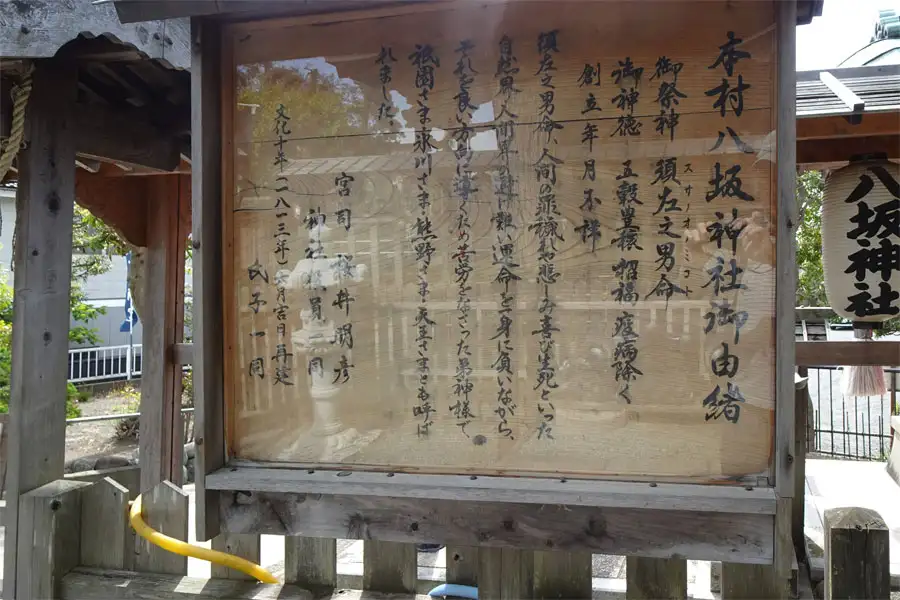 本村八坂神社御由緒
御祭神 須左之男命
スサノオノミコト
御神徳 五穀豊穣 招福 疫病除く
創立年月不詳
須左之男命、人間の罪穢れや悲しみ喜び生死といった
自然界、人間界の避け難い運命を一身に負いながら、
それを良い方向に導くため苦労をなさった男神様で
祇園さま・氷川さま・熊野さま・天王さまとも呼ば
れました。
宮司 桜井明彦
神社役員一同
氏子一同
文化十年(一八一三年)六月吉日再建
八坂神社